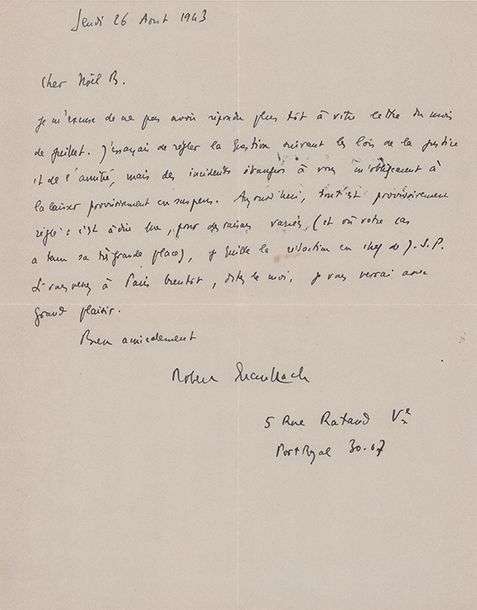 Jeudi 26 Aout 1943
Cher Noël B.
Je m'excuse de ne pas avoir répondu plus tôt à votre lettre du mois
de juillet. J'essayais de régler la question suivant les lois de la justice
et de l'amitié, mais des incidents étrangers à vous m'obligeaient à
la laisser provisoirement en suspens. Aujourd'hui, tout est provisoirement
réglé : c'est à dire que, pour des raisons variées, (et où votre cas
a tenu sa très grande place), je quitte la rédaction en chef de J.S.P.
Si vous venez à Paris bientôt, dites le moi, je vous verrai avec
grand plaisir.
Bien amicalement
Robert
5 Rue Rataud Ve
Port Royal 30.17